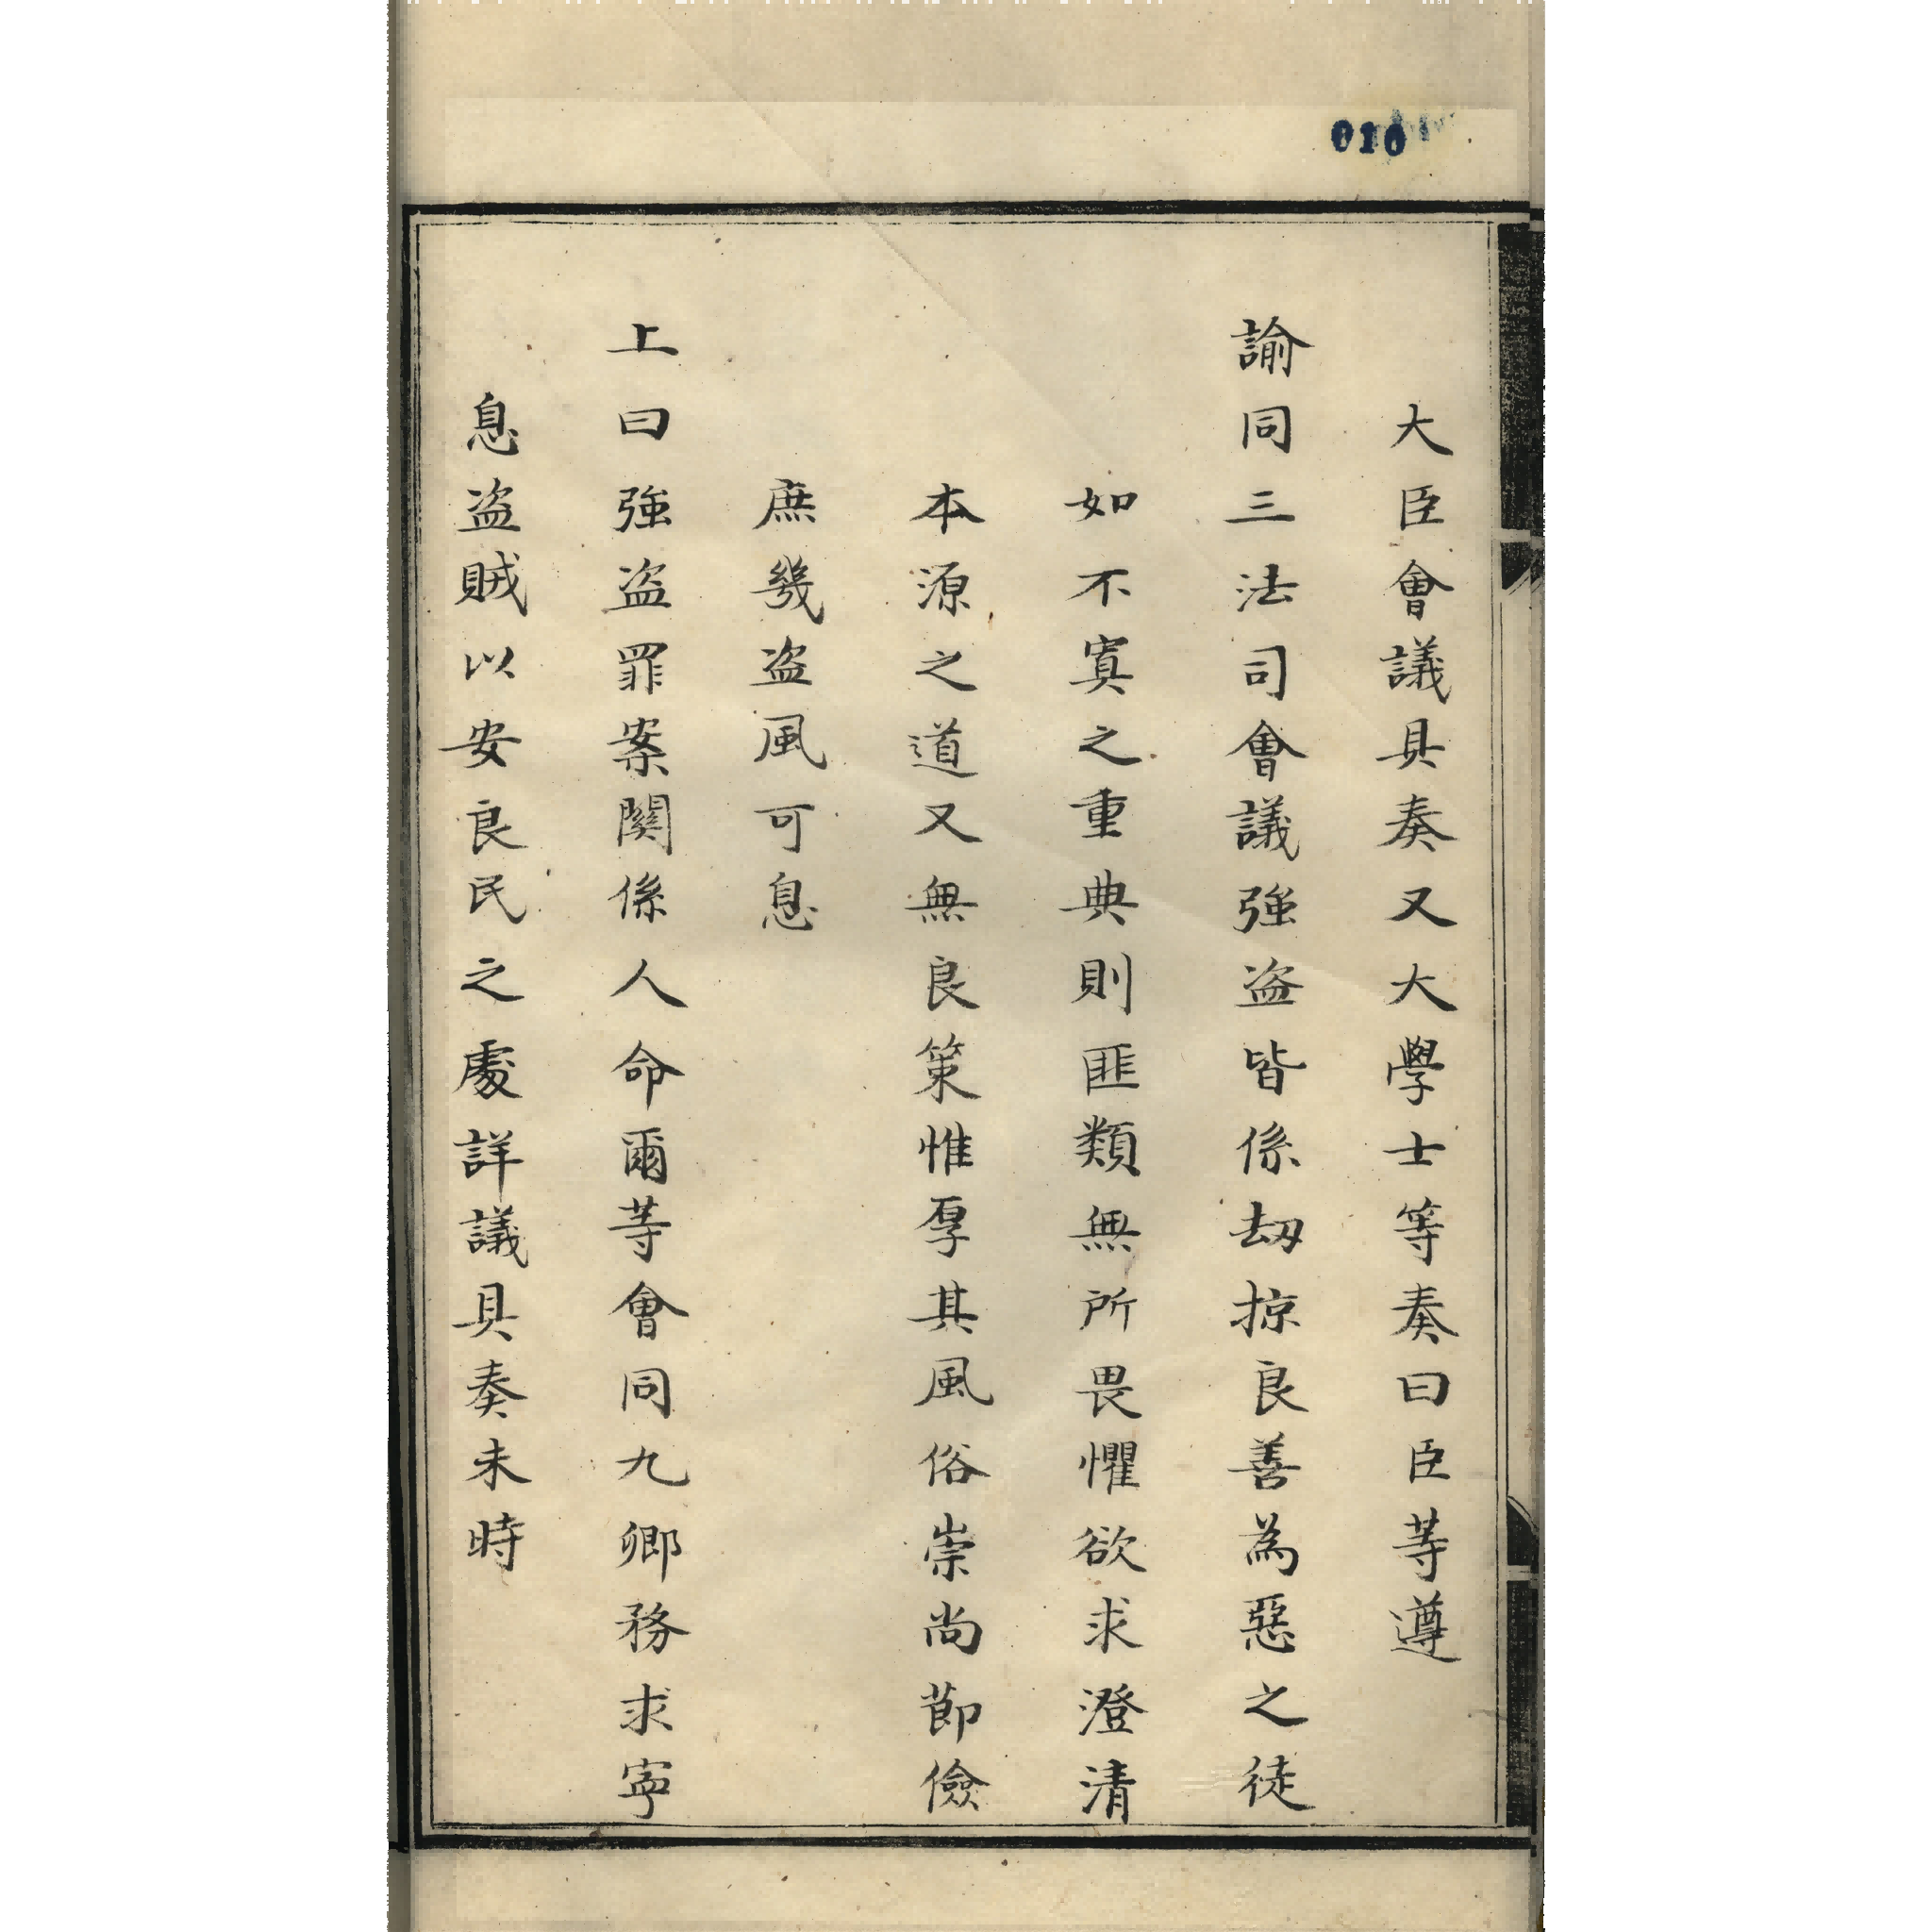 010
大臣會議具奏又大學士等奏曰臣等遵
諭同三法司會議強盜皆係劫掠良善為惡之徒
如不寘之重典則匪類無所畏懼欲求澄清
本源之道又無良策惟厚其風俗崇尚節儉
庶幾盜風可息
上曰強盜罪案關係人命爾等會同九卿務求寧
息盜賊以安良民之處詳議具奏未時